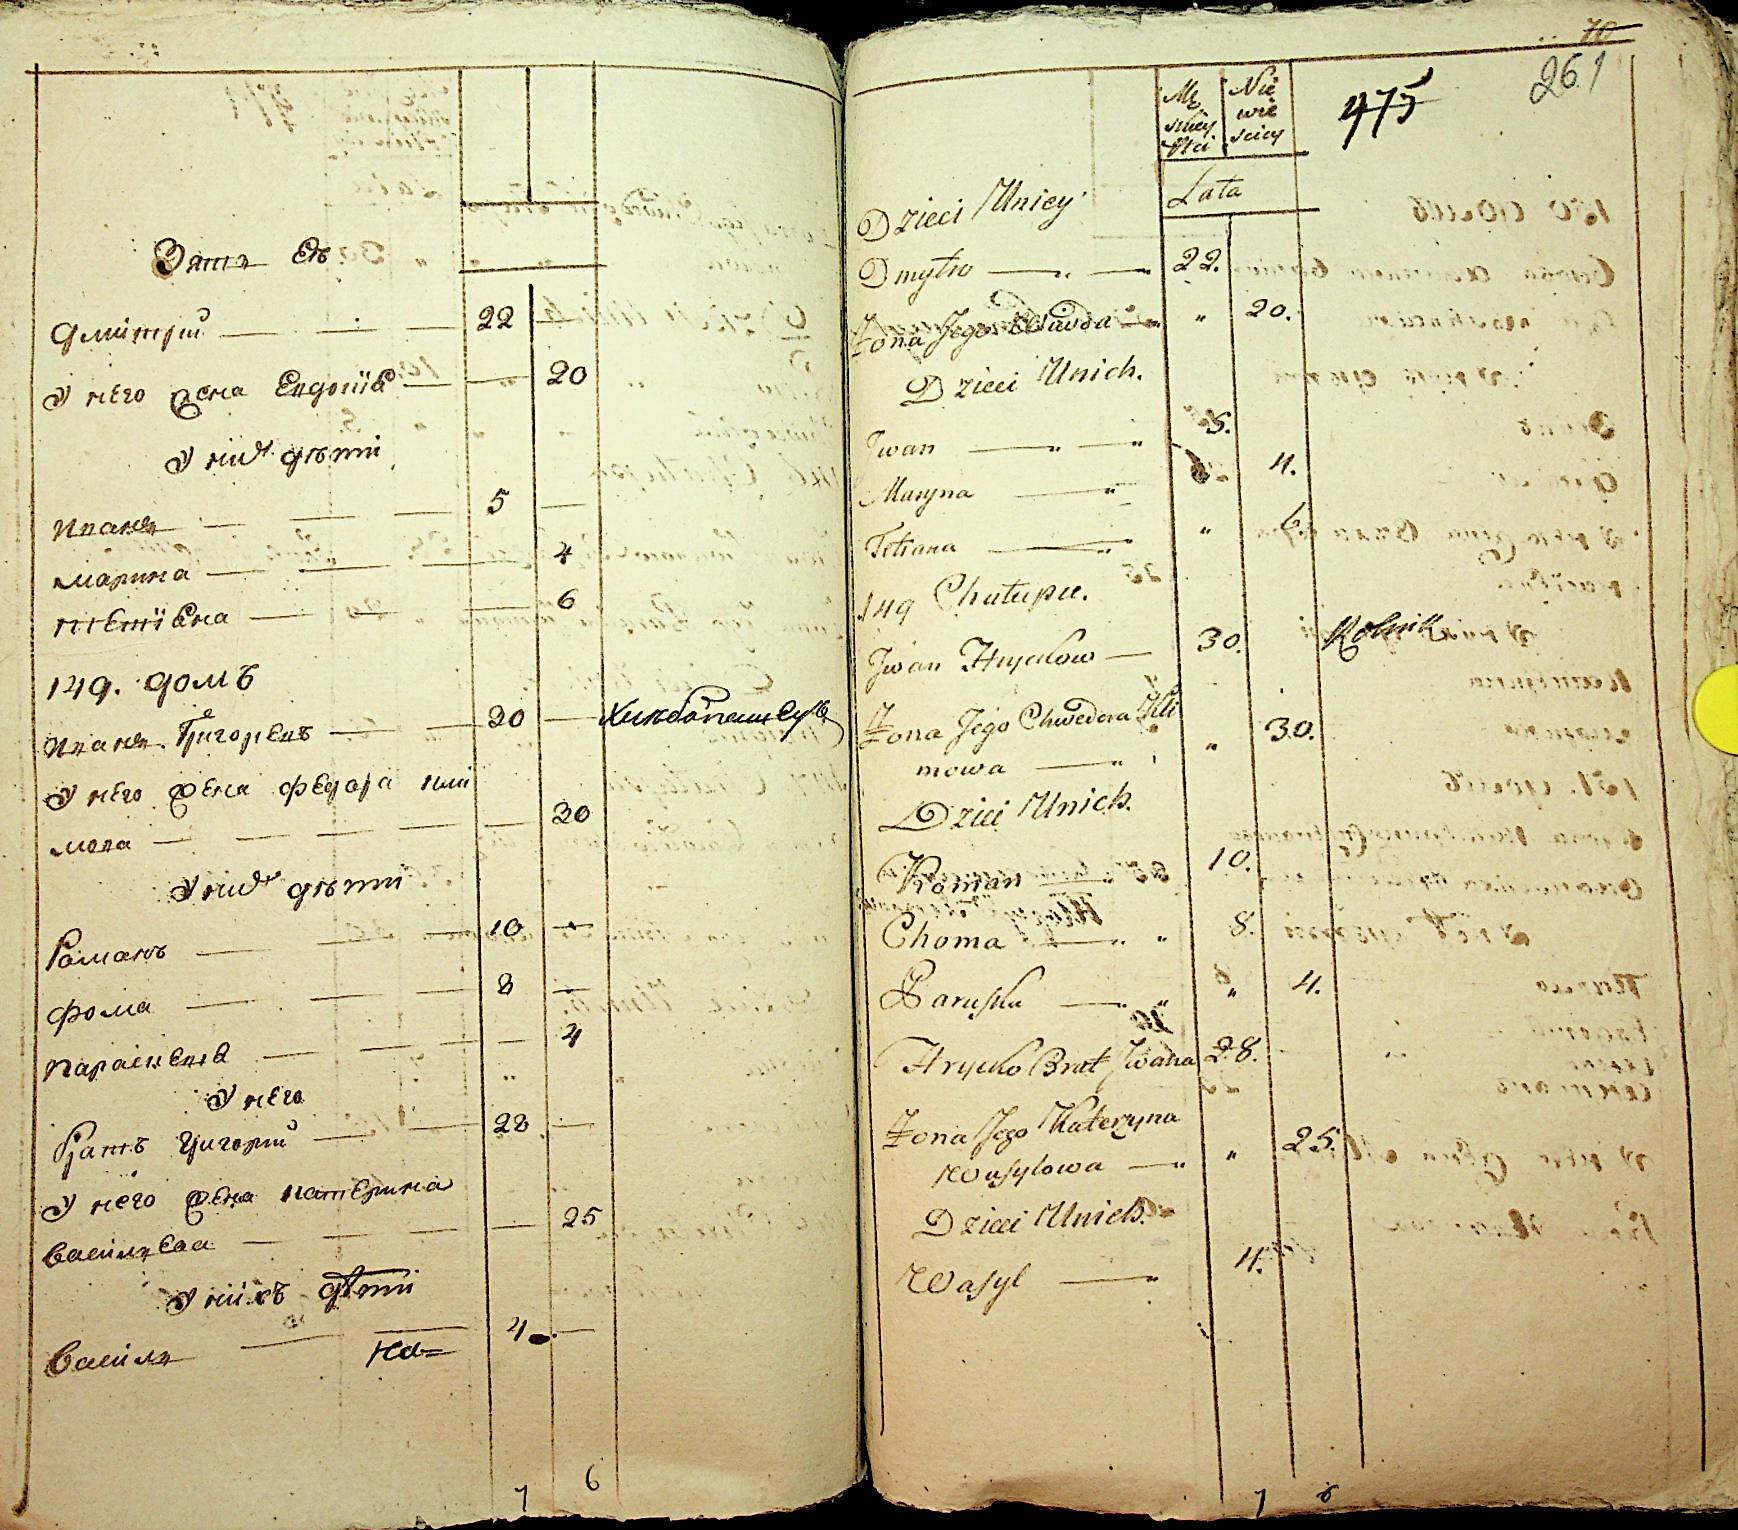 Зять Евъ
Дмитрий 22
У него жена Евдокія 20
У них дѣти
Иванъ 5
Марина 4
Тетіѣна 6
149. домъ
Иванъ Григорьевъ 30 Хлѣбопашецъ
У него жена Федора Кли
мова 30
У них дѣти
Романъ 10
Фома 8
Параскева 4
У него
Братъ Григорий 28
У него жена Катерина
Васильева 25
У нихъ дѣти
Василь 4
на=
7 6
70
261
475
Mę Nie
skiey wie
Płci sciey
Lata
Dzieci Unicy
Dmytro 22.
Żona Jego 20.
Dzieci Unich.
Jwan 5.
Maryna 4.
Tetiana 6
149 Chałupa.
Jwan Hryckow 30. Rolnik
Żona Jego Chwedora Kli
mowa 30.
Dzieci Unich.
Roman 10.
Choma 8.
Paraska 4.
Hrycko Brat Jwana 28.
Żona Jego Kateryna
Wasylowa 25.
Dzieci Unich.
Wasyl 4.
7 6